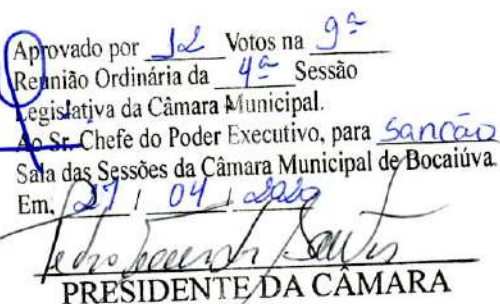 Aprovado por 12 Votos na 9ª
Reunião Ordinária da 4ª Sessão
Legislativa da Câmara Municipal.
Ao Sr. Chefe do Poder Executivo, para Sanção
Sala das Sessões da Câmara Municipal de Bocaiúva.
Em, 27 / 04 / 2020
PRESIDENTE DA CÂMARA